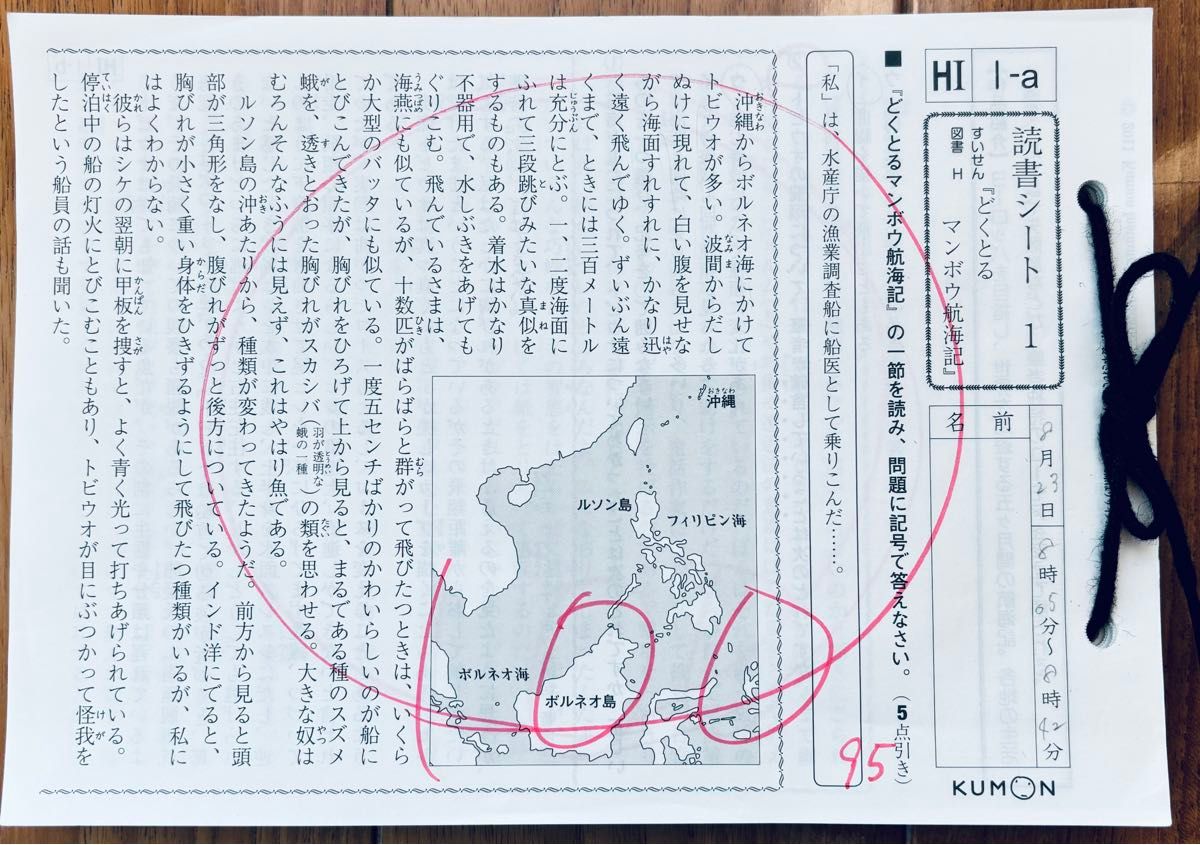 HI
1-a
読書シート 1
すいせん図書 H
『どくとるマンボウ航海記』
名前
8月23日
8時05分～8時42分
KUMON
■『どくとるマンボウ航海記』の一節を読み、問題に記号で答えなさい。（5点引き）
95
「私」は、水産庁の漁業調査船に船医として乗りこんだ……。
沖縄からボルネオ海にかけて
トビウオが多い。波間からだし
ぬけに現れて、白い腹を見せな
がら海面すれすれに、かなり迅
く遠く飛んでゆく。ずいぶん遠
くまで、ときには三百メートル
は充分にとぶ。一、二度海面に
ふれて三段跳びみたいな真似を
するものもある。着水はかなり
不器用で、水しぶきをあげても
ぐりこむ。飛んでいるさまは、
海燕にも似ているが、十数匹がばらばらと群がって飛びたつときは、いくら
か大型のバッタにも似ている。一度五センチばかりのかわいらしいのが船に
とびこんできたが、胸びれをひろげて上から見ると、まるである種のスズメ
蛾を、透きとおった胸びれがスカシバ（羽が透明な蛾の一種）の類を思わせる。大きな奴は
むろんそんなふうには見えず、これはやはり魚である。
ルソン島の沖あたりから、種類が変わってきたようだ。前方から見ると頭
部が三角形をなし、腹びれがずっと後方についている。インド洋にでると、
胸びれが小さく重い身体をひきずるようにして飛びたつ種類がいるが、私に
はよくわからない。
彼らはシケの翌朝に甲板を捜すと、よく青く光って打ちあげられている。
停泊中の船の灯火にとびこむこともあり、トビウオが目にぶつかって怪我を
したという船員の話も聞いた。
沖縄
ルソン島
フィリピン海
ボルネオ海
ボルネオ島
100